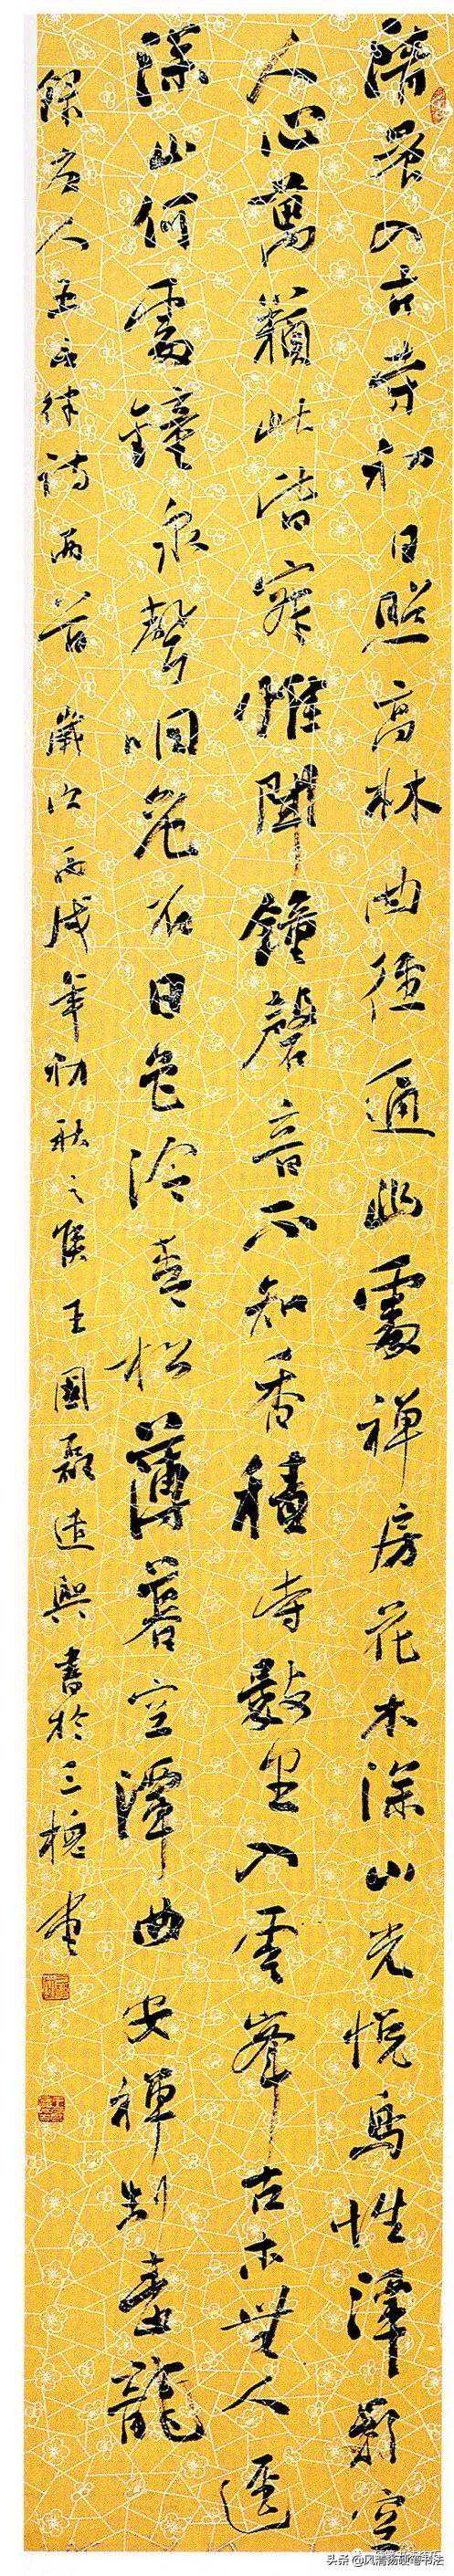 清晨入古寺初日照高林曲徑通幽處禪房花木深山光悅鳥性潭影空
人心萬籟此皆寂惟聞鐘磬音不知香積寺數里入雲峯古木無人逕
深山何處鐘泉聲咽危石日色冷青松薄暮空潭曲安禪制毒龍
錄唐人五言律詩兩首歲次丙戌年初秋之候王國興書於三槐堂
头条 @风清扬书法